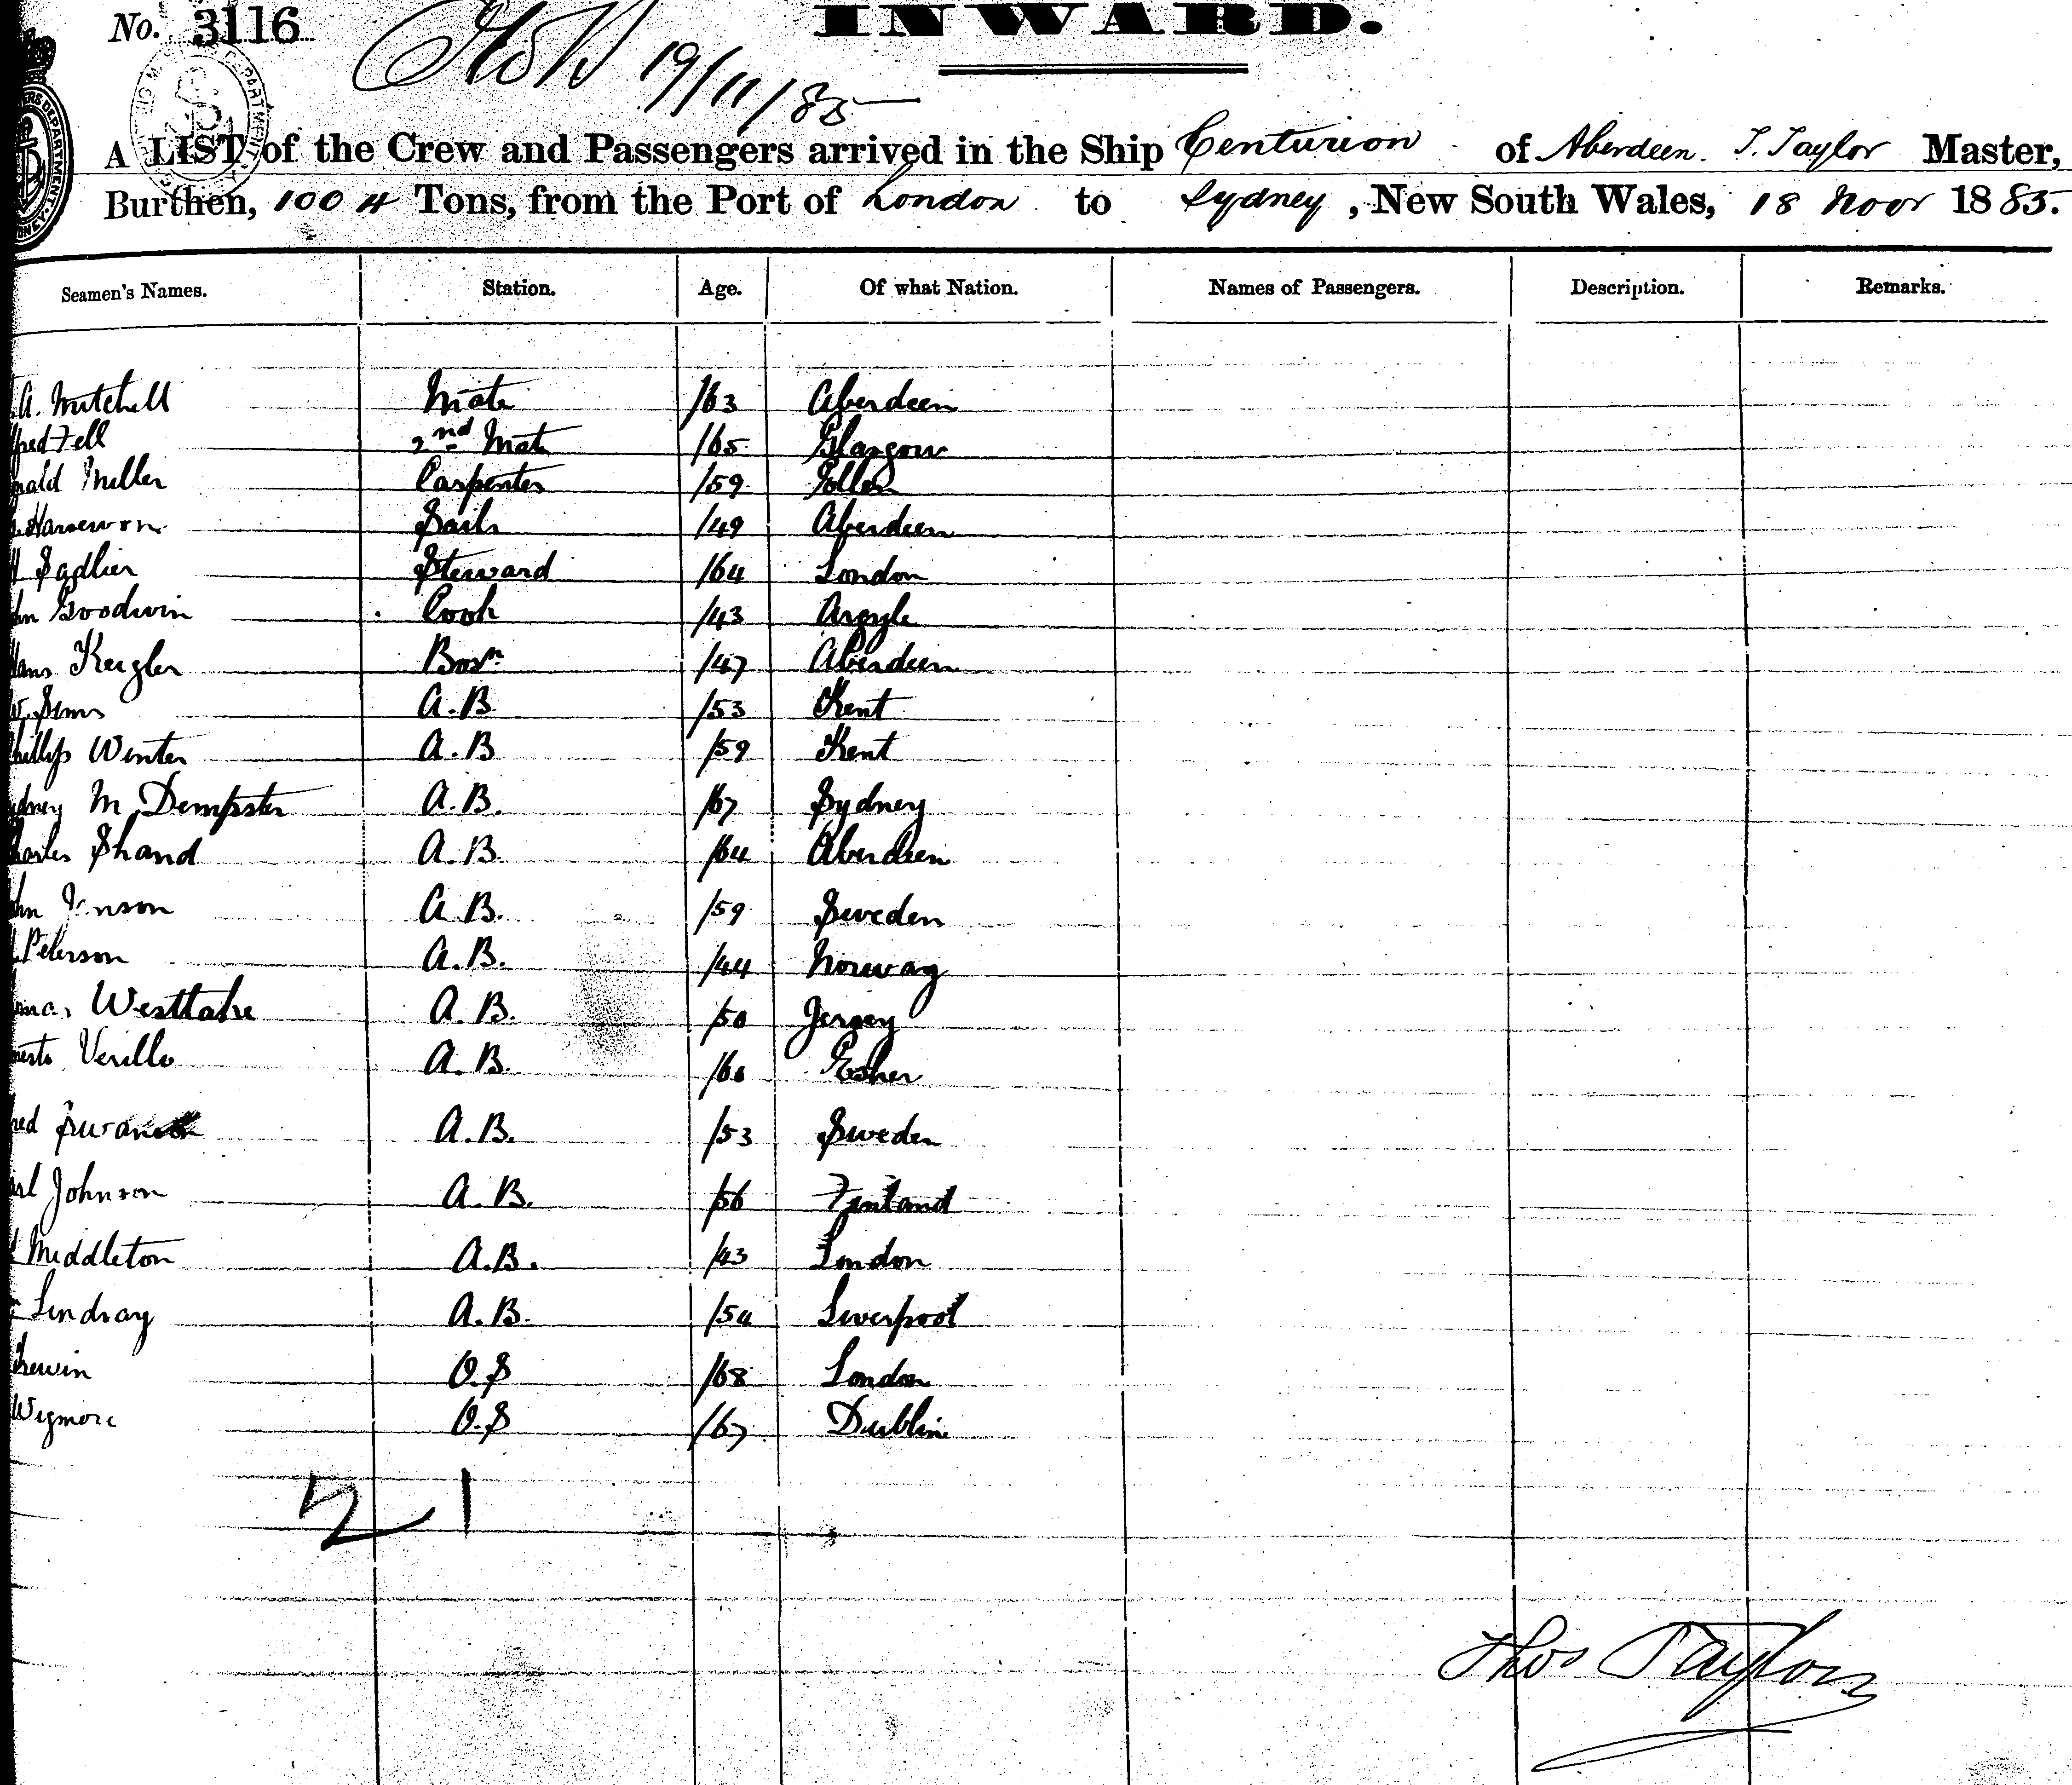 No. 3116
INWARD.
19/11/85
A LIST of the Crew and Passengers arrived in the Ship Centurion of Aberdeen. T. Taylor Master,
Burthen, 1004 Tons, from the Port of London to Sydney, New South Wales, 18 Novr 1885.
Seamen's Names. Station. Age. Of what Nation. Names of Passengers. Description. Remarks.
A. Mitchell Mate /63 Aberdeen
Fell 2nd Mate /65 Glasgow
Miller Carpenter /59
Sails /49 Aberdeen
Sadlier Steward /64 London
Goodwin Cook /43 Argyle
Keigler Bosn /47 Aberdeen
Sims A.B. /53 Kent
Winter A.B /59 Kent
M Dempster A.B. /67 Sydney
Shand A.B. /64 Aberdeen
Janson A.B. /59 Sweden
Peterson A.B. /44 Norway
Westlake A.B. /50 Jersey
Verillo A.B. /60 Esher
A.B. /53 Sweden
Johnson A.B. /56 Finland
Middleton A.B. /43 London
Lindsay A.B. /54 Liverpool
O.S /68 London
Wigmore O.S /67 Dublin
21
Thos Taylor